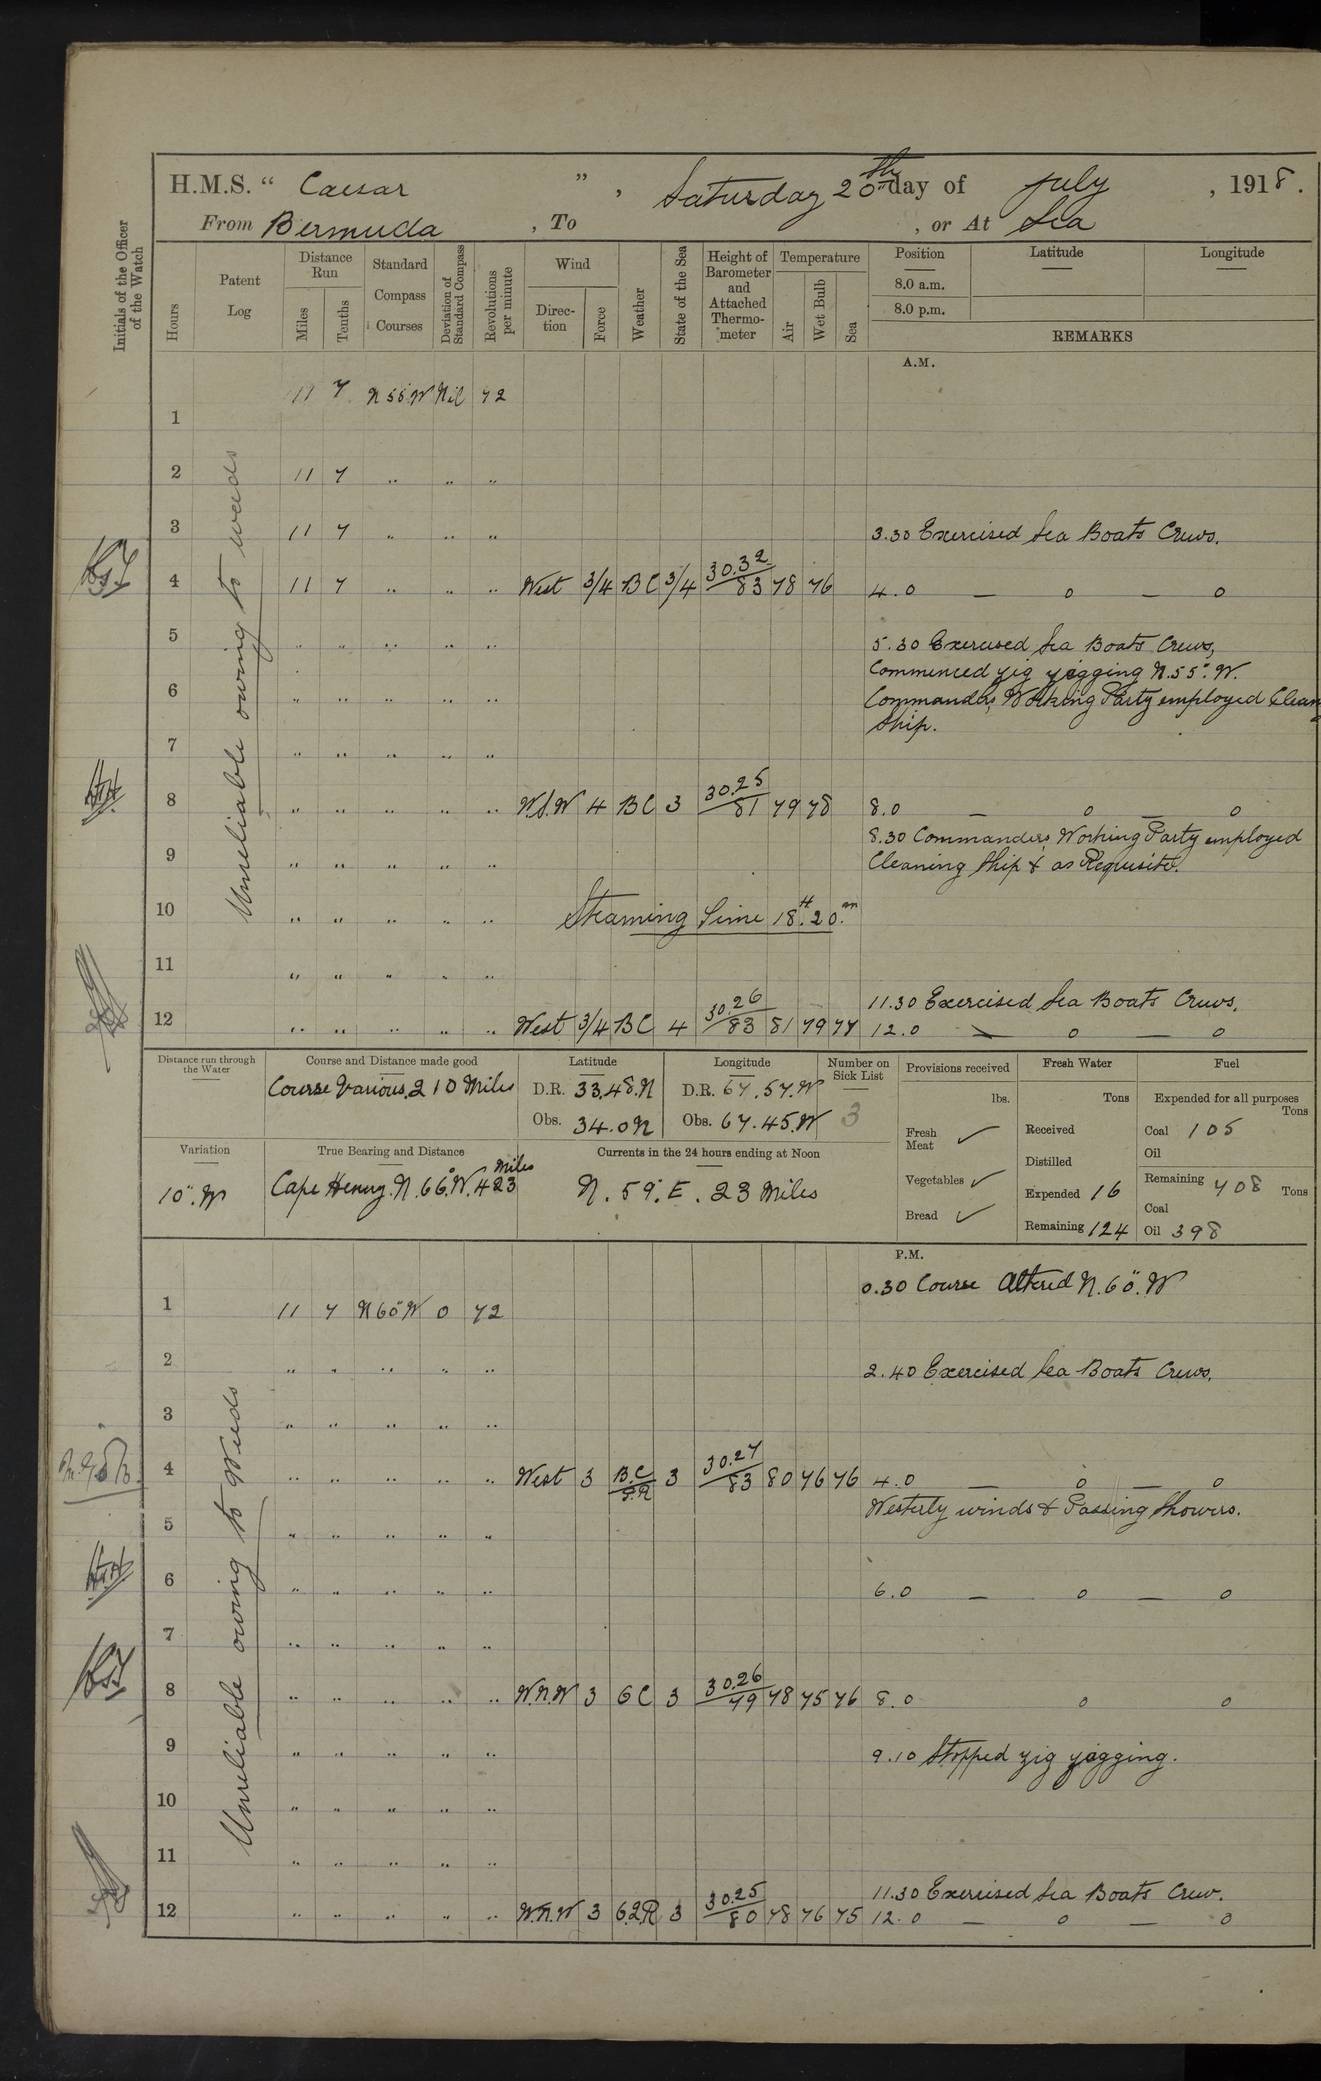 H.M.S. “ Caesar ” , Saturday 20th day of July , 1918 .
From Bermuda , To , or At Sea
Initials of the Officer of the Watch
Hours
Patent Log
Distance Run
Miles
Tenths
Standard Compass Courses
Deviation of Standard Compass
Revolutions per minute
Wind
Direction
Force
Weather
State of the Sea
Height of Barometer and Attached Thermometer
Temperature
Air
Wet Bulb
Sea
Position
8.0 a.m.
8.0 p.m.
Latitude
Longitude
REMARKS
A.M.
Unreliable owing to weeds
1 11 7 N 55° W Nil 72
2 11 7 .. .. ..
3 11 7 .. .. .. 3.30 Exercised Sea Boats Crews.
4 11 7 .. .. .. West 3/4 BC 3/4 30.32/83 78 76 4.0 — o — o
5 .. .. .. .. .. 5.30 Exercised Sea Boats Crews,
Commenced zig zagging N.55°.W.
6 .. .. .. .. .. Commanders Working Party employed Clean
Ship.
7 .. .. .. .. ..
8 .. .. .. .. .. W.S.W 4 BC 3 30.25/81 79 78 8.0 — o — o
8.30 Commanders Working Party employed
9 .. .. .. .. .. Cleaning Ship & as Requisite.
10 .. .. .. .. .. Steaming Time 18.H 20.m
11 .. .. .. .. ..
11.30 Exercised Sea Boats Crews.
12 .. .. .. .. .. West 3/4 BC 4 30.26/83 81 79 77 12.0 — o — o
Distance run through the Water
Course and Distance made good
Course Various. 210 Miles
Latitude
D.R. 33.48.N
Obs. 34.0 N
Longitude
D.R. 67.57.W
Obs. 67.45.W
Number on Sick List
3
Provisions received
lbs.
Fresh Meat ✓
Vegetables ✓
Bread ✓
Fresh Water
Tons
Received
Distilled
Expended 16
Remaining 124
Fuel
Expended for all purposes
Tons
Coal 105
Oil
Remaining 708 Tons
Coal
Oil 398
Variation
10°. W
True Bearing and Distance
Cape Henry. N.66°.W. 423 Miles
Currents in the 24 hours ending at Noon
N. 59°. E. 23 Miles
P.M.
Unreliable owing to Weeds
0.30 Course Altered N.60°.W
1 11 7 N 60° W 0 72
2 .. .. .. .. .. 2.40 Exercised Sea Boats Crews.
3 .. .. .. .. ..
4 .. .. .. .. .. West 3 B.C/P.R 3 30.27/83 80 76 76 4.0 — o — o
Westerly winds & Passing Showers.
5 .. .. .. .. ..
6 .. .. .. .. .. 6.0 — o — o
7 .. .. .. .. ..
8 .. .. .. .. .. W.N.W 3 6C 3 30.26/79 78 75 76 8.0 o o
9 .. .. .. .. .. 9.10 Stopped zig zagging.
10 .. .. .. .. ..
11 .. .. .. .. ..
11.30 Exercised Sea Boats Crew.
12 .. .. .. .. .. W.N.W 3 3 30.25/80 78 76 75 12.0 — o — o